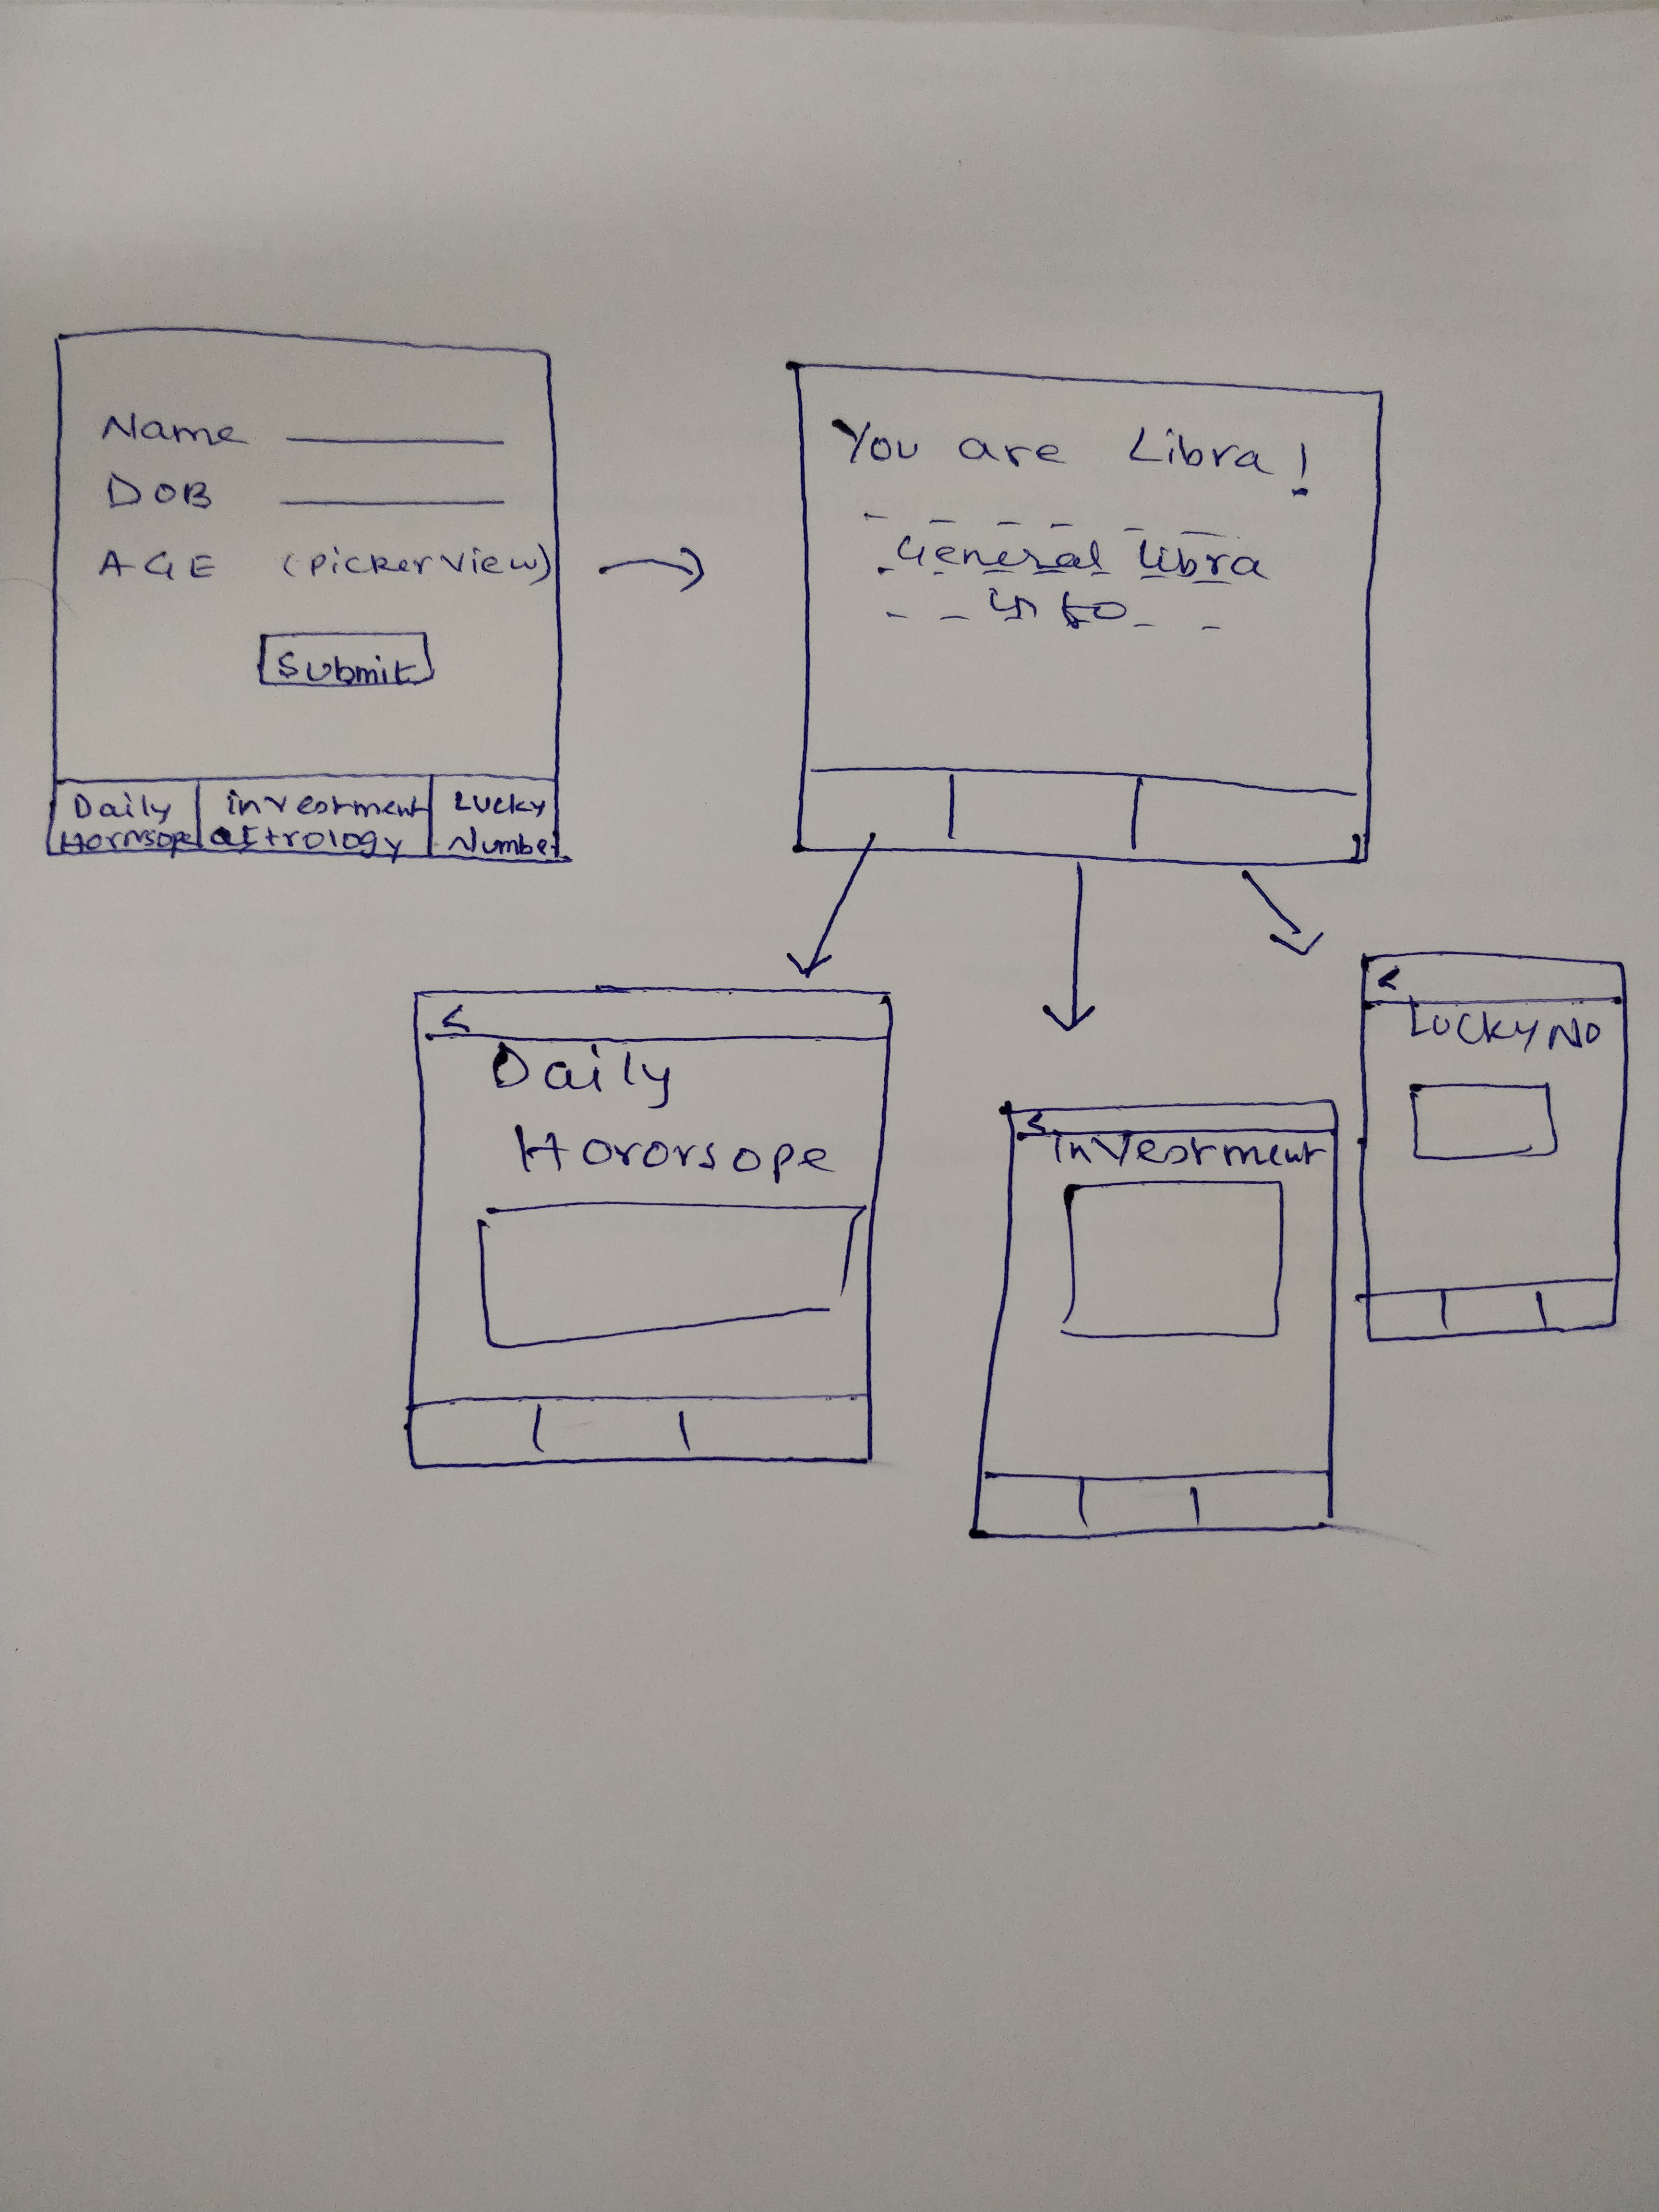 Name
DOB
AGE (PickerView)
Submit
Daily Hororsope
investment astrology
Lucky Number
You are Libra!
General libra
info
<
Daily
Hororsope
<
investment
<
Lucky NO